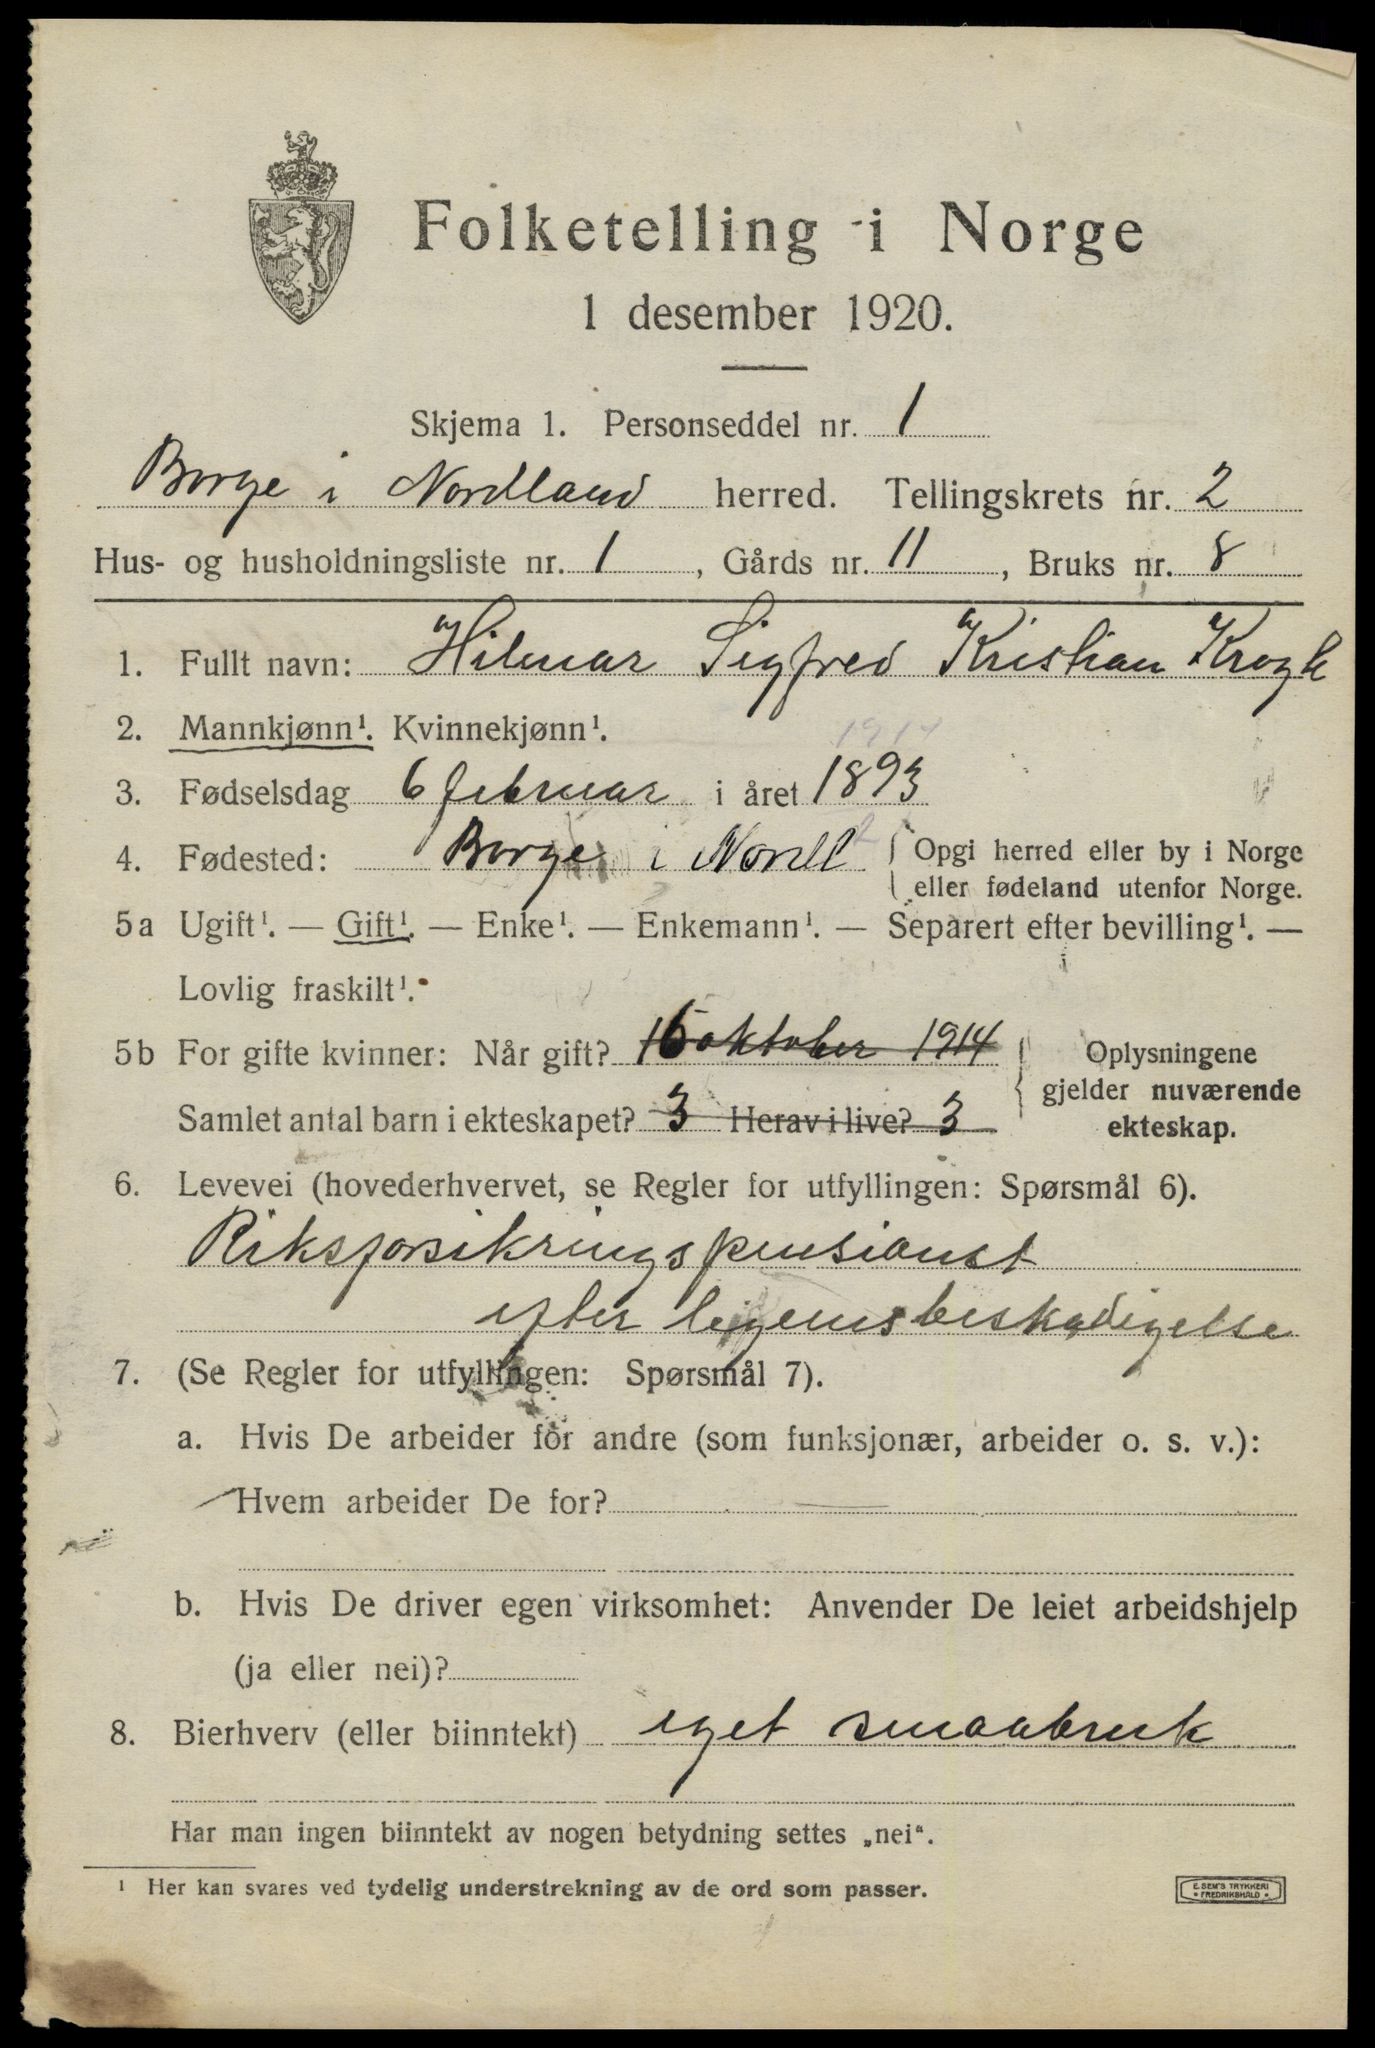 Folketelling i Norge
1 desember 1920.
Skjema 1. Personseddel nr. 1
Borge i Nordland herred. Tellingskrets nr. 2
Hus- og husholdningsliste nr. 1, Gårds nr. 11, Bruks nr. 8
1. Fullt navn: Hilmar Sigfred Kristian Krogh
2. Mannkjønn¹. Kvinnekjønn¹.
3. Fødselsdag 6 februar i året 1893
4. Fødested: Borge i Nordl { Opgi herred eller by i Norge
eller fødeland utenfor Norge.
5a Ugift¹. — Gift¹. — Enke¹. — Enkemann¹. — Separert efter bevilling¹. —
Lovlig fraskilt¹.
5b For gifte kvinner: Når gift? 16 oktober 1914 { Oplysningene
gjelder nuværende
Samlet antal barn i ekteskapet? 3 Herav i live? 3 ekteskap.
6. Levevei (hovederhvervet, se Regler for utfyllingen: Spørsmål 6).
Riksforsikringspensionst
efter legemsbeskadigelse
7. (Se Regler for utfyllingen: Spørsmål 7).
a. Hvis De arbeider for andre (som funksjonær, arbeider o. s. v.):
Hvem arbeider De for?
b. Hvis De driver egen virksomhet: Anvender De leiet arbeidshjelp
(ja eller nei)?
8. Bierhverv (eller biinntekt) eget smaabruk
Har man ingen biinntekt av nogen betydning settes „nei“.
¹ Her kan svares ved tydelig understrekning av de ord som passer.
E. SEM'S TRYKKERI
• FREDRIKSHALD •